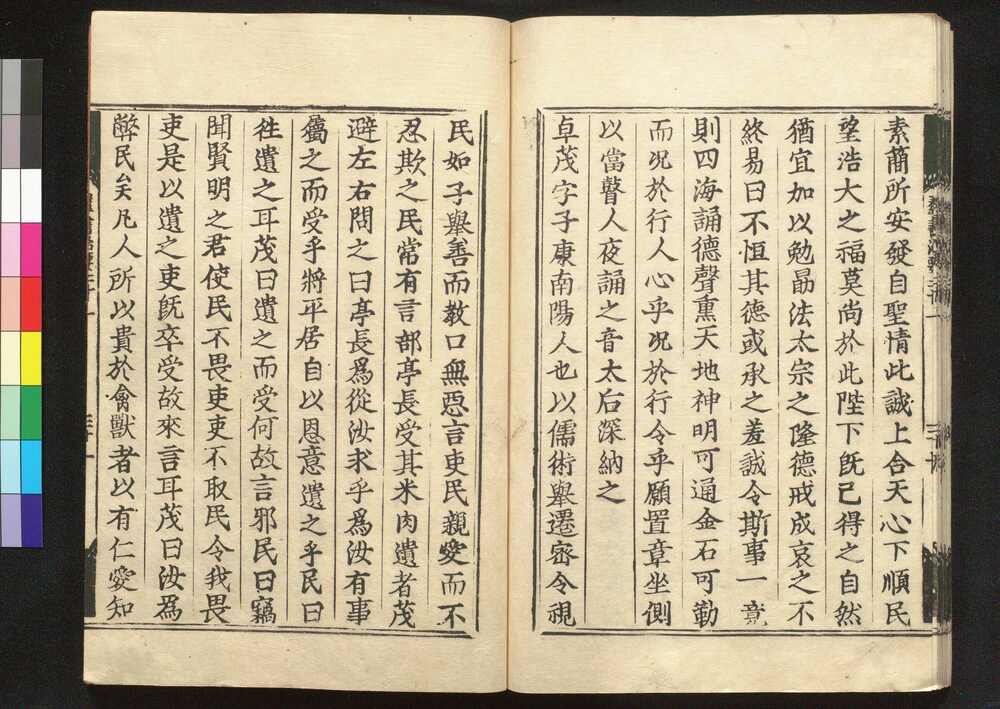 素蕳所安發自聖情此誠上合天心下順民
望浩大之福莫尚於此陛下旣已得之自然
猶宜加以勉勗法太宗之隆德戒成哀之不
終易曰不恒其德或承之羞誠令斯事一竟
則四海誦德聲熏天地神明可通金石可勒
而况於行人心乎况於行令乎願置章坐側
以當瞽人夜誦之音太后深納之
卓茂字子康南陽人也以儒術舉遷宻令視
民如子舉善而教口無惡言吏民親愛而不
忍欺之民常有言部亭長受其米肉遺者茂
避左右問之曰亭長爲從汝求乎爲汝有事
屬之而受乎將平居自以恩意遺之乎民曰
往遺之耳茂曰遺之而受何故言邪民曰竊
聞賢明之君使民不畏吏吏不取民今我畏
吏是以遺之吏旣卒受故來言耳茂曰汝爲
弊民矣凡人所以貴於禽獸者以有仁愛知